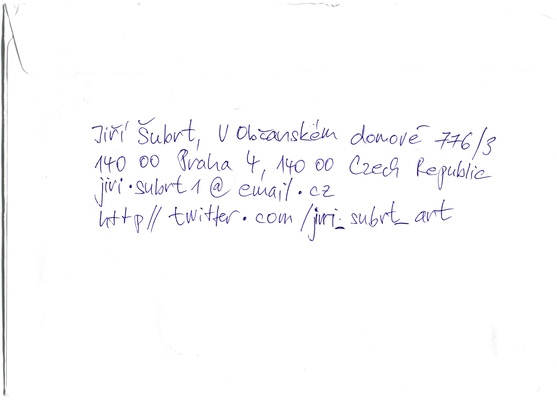 Jiří Šubrt, V Občanském domově 776/3
140 00 Praha 4, 140 00 Czech Republic
jiri.subrt1@email.cz
http// twitter.com/jiri_subrt_art